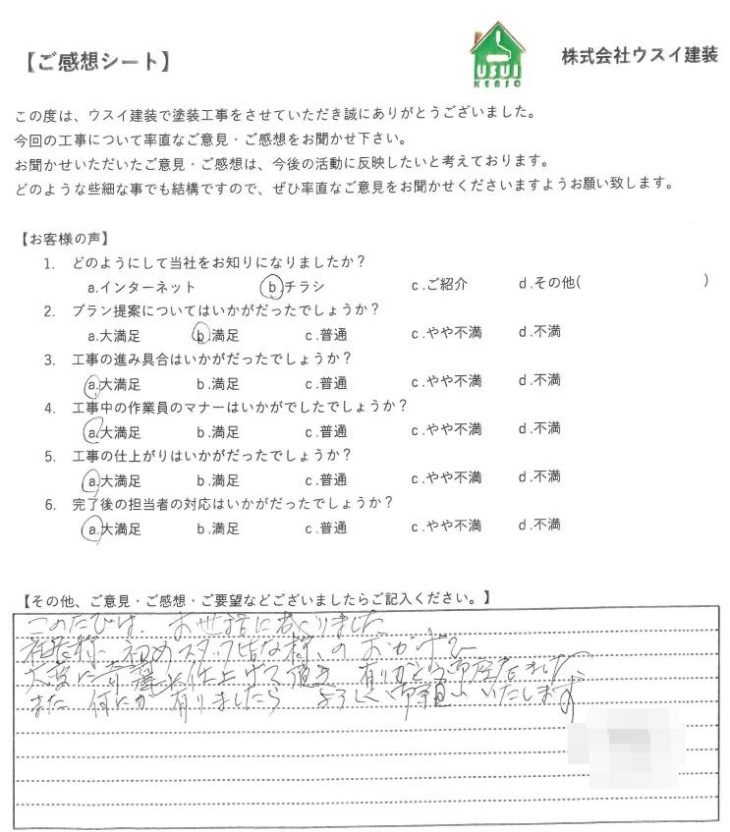 【ご感想シート】
USUI
KENSO
株式会社ウスイ建装
この度は、ウスイ建装で塗装工事をさせていただき誠にありがとうございました。
今回の工事について率直なご意見・ご感想をお聞かせ下さい。
お聞かせいただいたご意見・ご感想は、今後の活動に反映したいと考えております。
どのような些細な事でも結構ですので、ぜひ率直なご意見をお聞かせくださいますようお願い致します。
【お客様の声】
1. どのようにして当社をお知りになりましたか？
a.インターネット b.チラシ c.ご紹介 d.その他( )
2. プラン提案についてはいかがだったでしょうか？
a.大満足 b.満足 c.普通 c.やや不満 d.不満
3. 工事の進み具合はいかがだったでしょうか？
a.大満足 b.満足 c.普通 c.やや不満 d.不満
4. 工事中の作業員のマナーはいかがでしたでしょうか？
a.大満足 b.満足 c.普通 c.やや不満 d.不満
5. 工事の仕上がりはいかがだったでしょうか？
a.大満足 b.満足 c.普通 c.やや不満 d.不満
6. 完了後の担当者の対応はいかがだったでしょうか？
a.大満足 b.満足 c.普通 c.やや不満 d.不満
【その他、ご意見・ご感想・ご要望などございましたらご記入ください。】
このたびは、お世話になりました
社長様、初めスタッフ皆な様、のおかげで
大変に奇麗に仕上げて頂き 有りがとう御座居ました
また 何にか 有りましたら よろしく御願いいたします